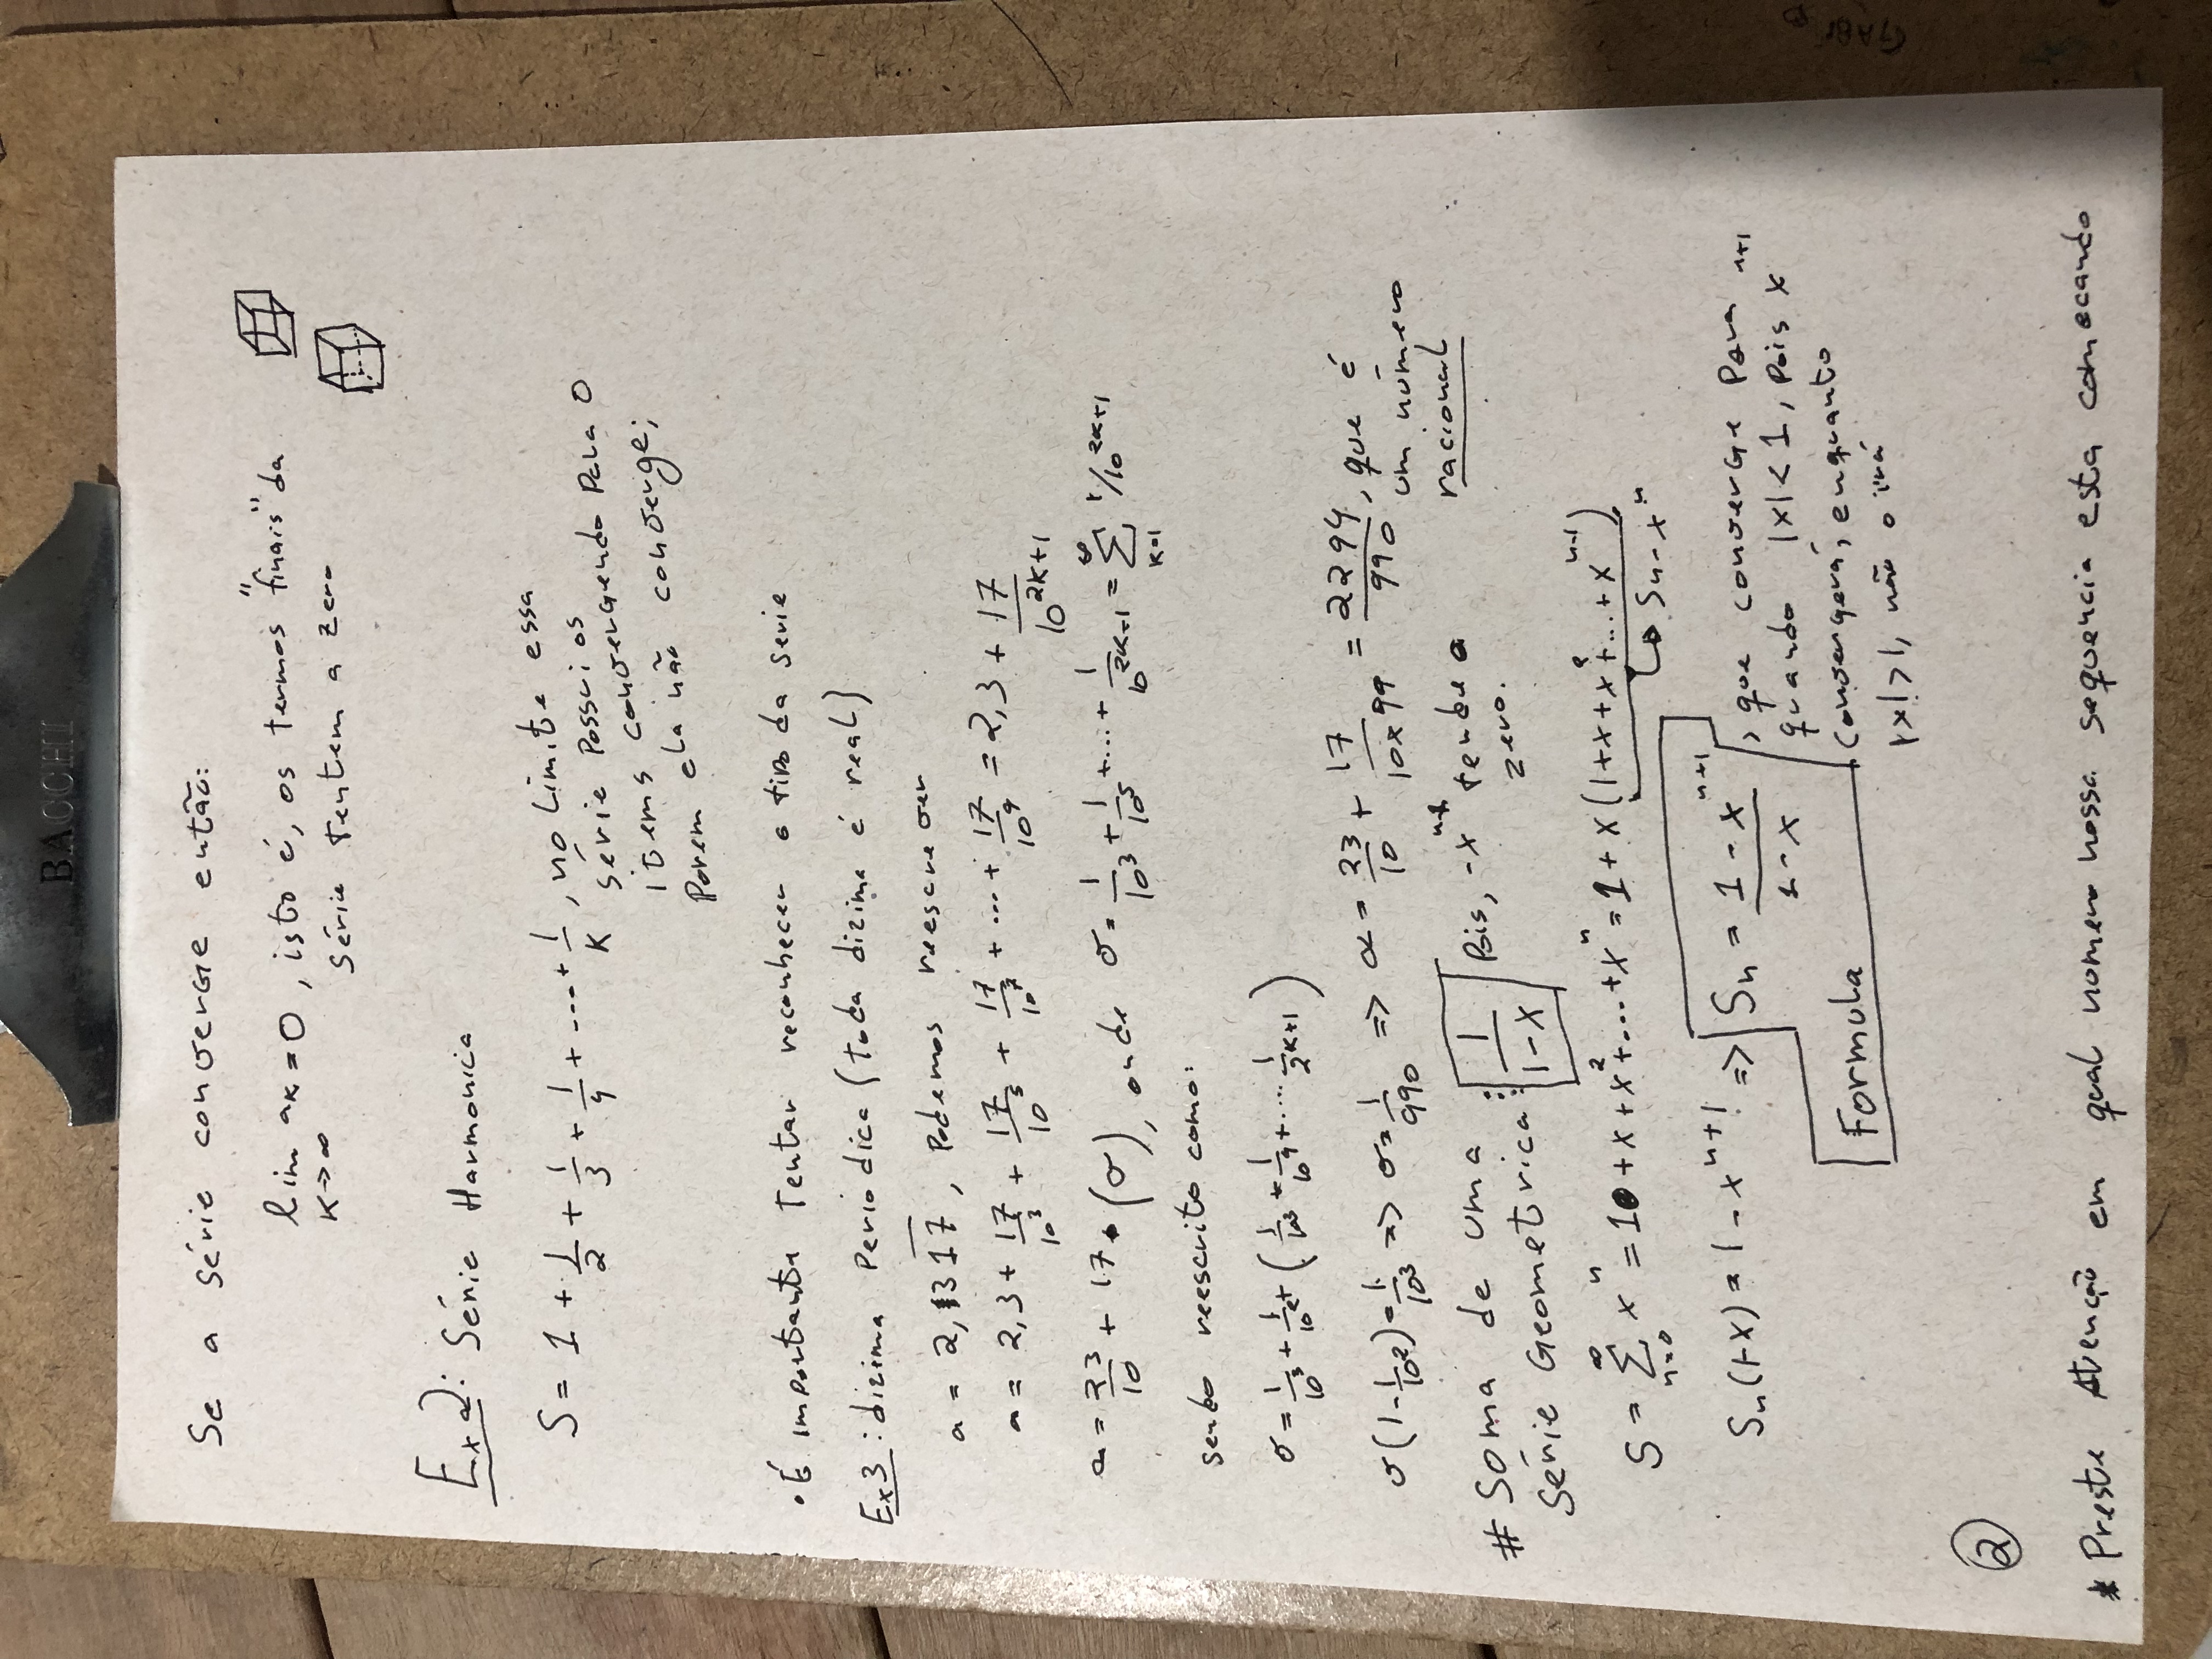 BACCHI
Se a série converge então:
lim ak = 0, isto é, os termos "finais" da
K→∞ série tentem a zero
Ex2: Série Harmonica
S = 1 + 1/2 + 1/3 + 1/4 + ... + 1/K, no limite essa
série possui os
items convergendo para 0
Porem ela não converge;
• É importante tentar reconhecer o tipo da serie
Ex3: dizima Periodica (toda dizima é real)
a = 2,3\overline{17}, Podemos reescrever
a = 2,3 + 17/10^3 + 17/10^5 + 17/10^7 + ... + 17/10^9 = 2,3 + 17/10^{2K+1}
a = 23/10 + 17·(σ), onde σ = 1/10^3 + 1/10^5 + ... + 1/10^{2K+1} = ∑_{K=1}^{∞} 1/10^{2K+1}
sendo reescrito como:
σ = 1/10^3 + 1/10^2 + (1/10^3 + 1/10^9 + .... 1/2^{K+1})
σ(1 - 1/10^2) = 1/10^3 => σ = 1/990 => α = 23/10 + 17/10x99 = 2294/990, que é
um número
racional
# Soma de uma
Série Geometrica: 1/1-X Pois, -x^{n+1} tende a
zero.
S = ∑_{n=0}^{∞} x^n = 1 + x + x^2 + ... + x^n = 1 + x(1 + x + x^2 + ... + x^{n-1})
↳ Sn - x^n
Sn(1-X) = 1 - x^{n+1} => Sn = 1 - x^{n+1}/1 - x, que converge para
quando |x| < 1, pois x^{n+1}
convergerá, enquanto
|x| > 1, não o irá
Formula
2
* Preste Atenção em qual numero nossa sequencia esta comecando